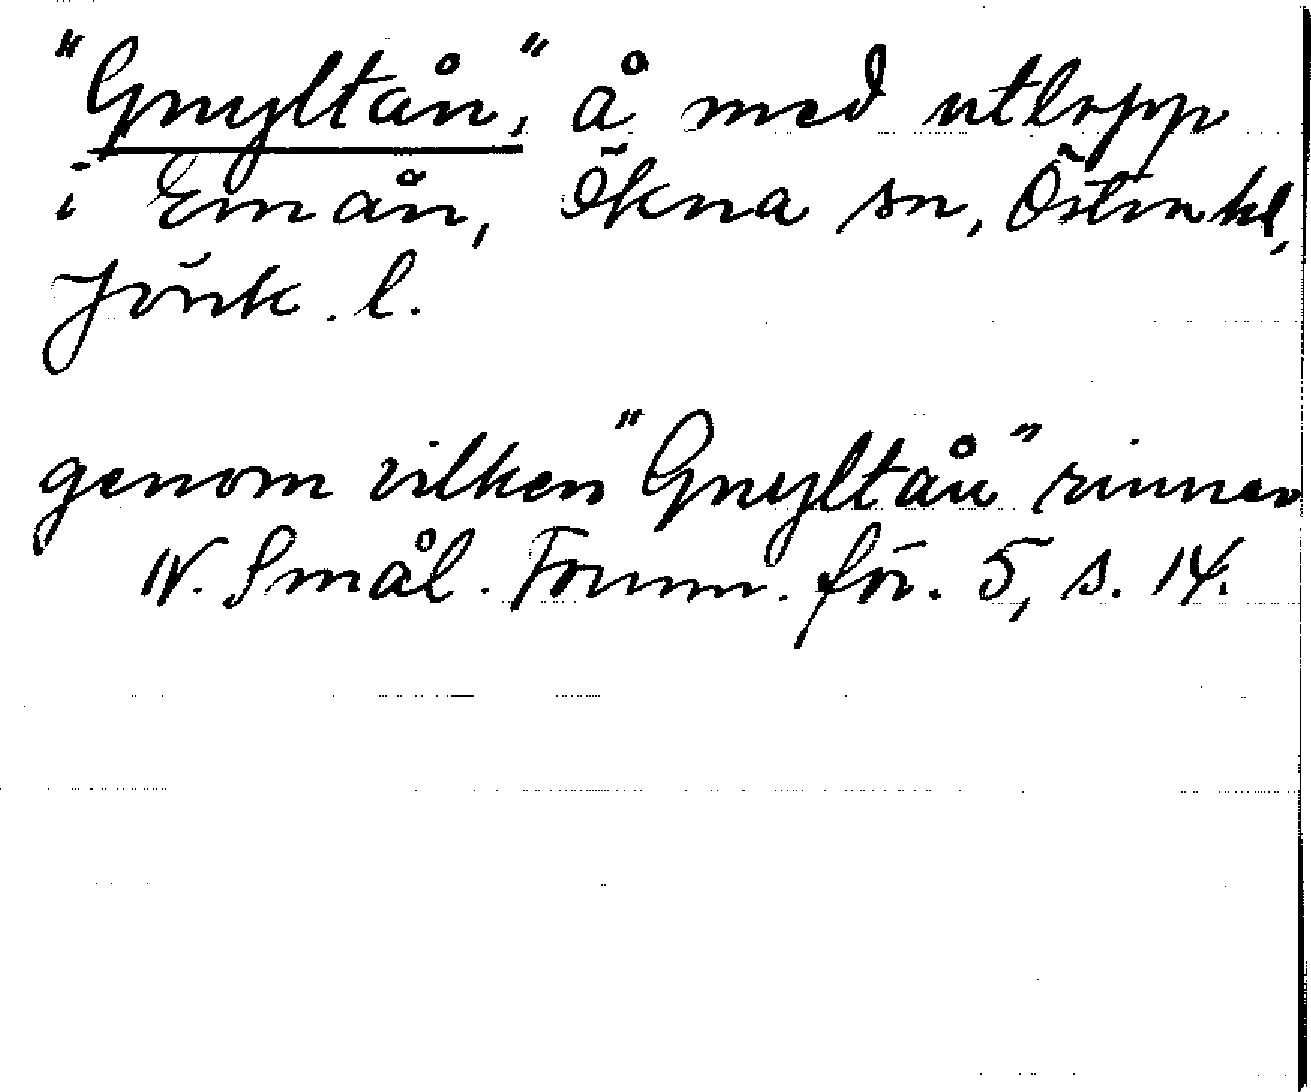 "Gnyltån," å med utlopp
i Emån, Ökna sn, Östra hd,
Jönk. l.
genom vilken "Gnyltån" rinner
N. Smål. Fornm. för. 5, s. 14.